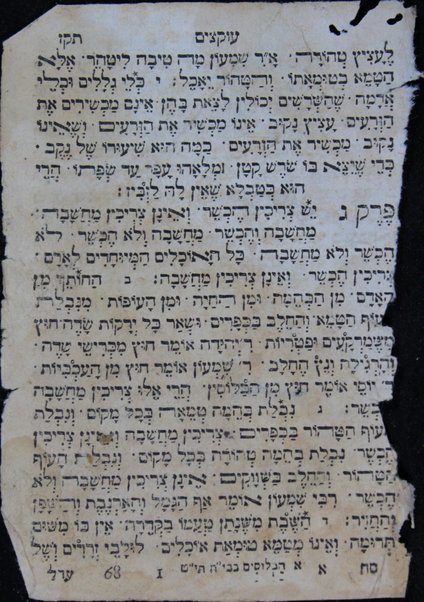 עוקצים תקו
לעציץ טהורה׃ א״ר שמעון מה טיבה ליטהר אלא
הטמא בטומאתו והטהור יאכל׃ י כלי גללים וכלי
אדמה שהשרשים יכולין לצאת בהן אינם מכשירים את
הזרעים עציץ נקוב אינו מכשיר את הזרעים ושאינו
נקוב מכשיר את הזרעים כמה הוא שיעורו של נקב
כדי שיצא בו שרש קטן ומלאהו עפר עד שפתו הרי
הוא כטבלא שאין לה לזבז׃
פרק ג יש צריכין הכשר ואינן צריכין מחשבה
מחשבה והכשר מחשבה ולא הכשר לא
הכשר ולא מחשבה כל האוכלים המיוחדים לאדם
צריכין הכשר ואינן צריכין מחשבה׃ ב החותך מן
האדם מן הבהמה ומן החיה ומן העופות מנבלת
עוף הטמא והחלב בכפרים ושאר כל ירקות שדה חוץ
משמרקעים ופטריות ר׳ יהודה אומר חוץ מכרישי שדה
והרגילה ונץ החלב ר׳ שמעון אומר חוץ מן העכביות
ר׳ יוסי אומר חוץ מן הכלוסין הרי אלו צריכין מחשבה
והכשר׃ ג נבלת בהמה טמאה בכל מקום ונבלת
העוף הטהור בכפרים צריכין מחשבה ואינן צריכין
הכשר נבלת בהמה טהורה בכל מקום ונבלת העוף
הטהור והחלב בשווקים אינן צריכין מחשבה ולא
הכשר רבי שמעון אומר אף הגמל והארנבת והשפן
והחזיר׃ ד השבת משנתן טעמו בקדרה אין בו משום
תרומה ואינו מטמא טומאת אוכלים לולבי זרדים ושל
סח א א 1 68 עדל